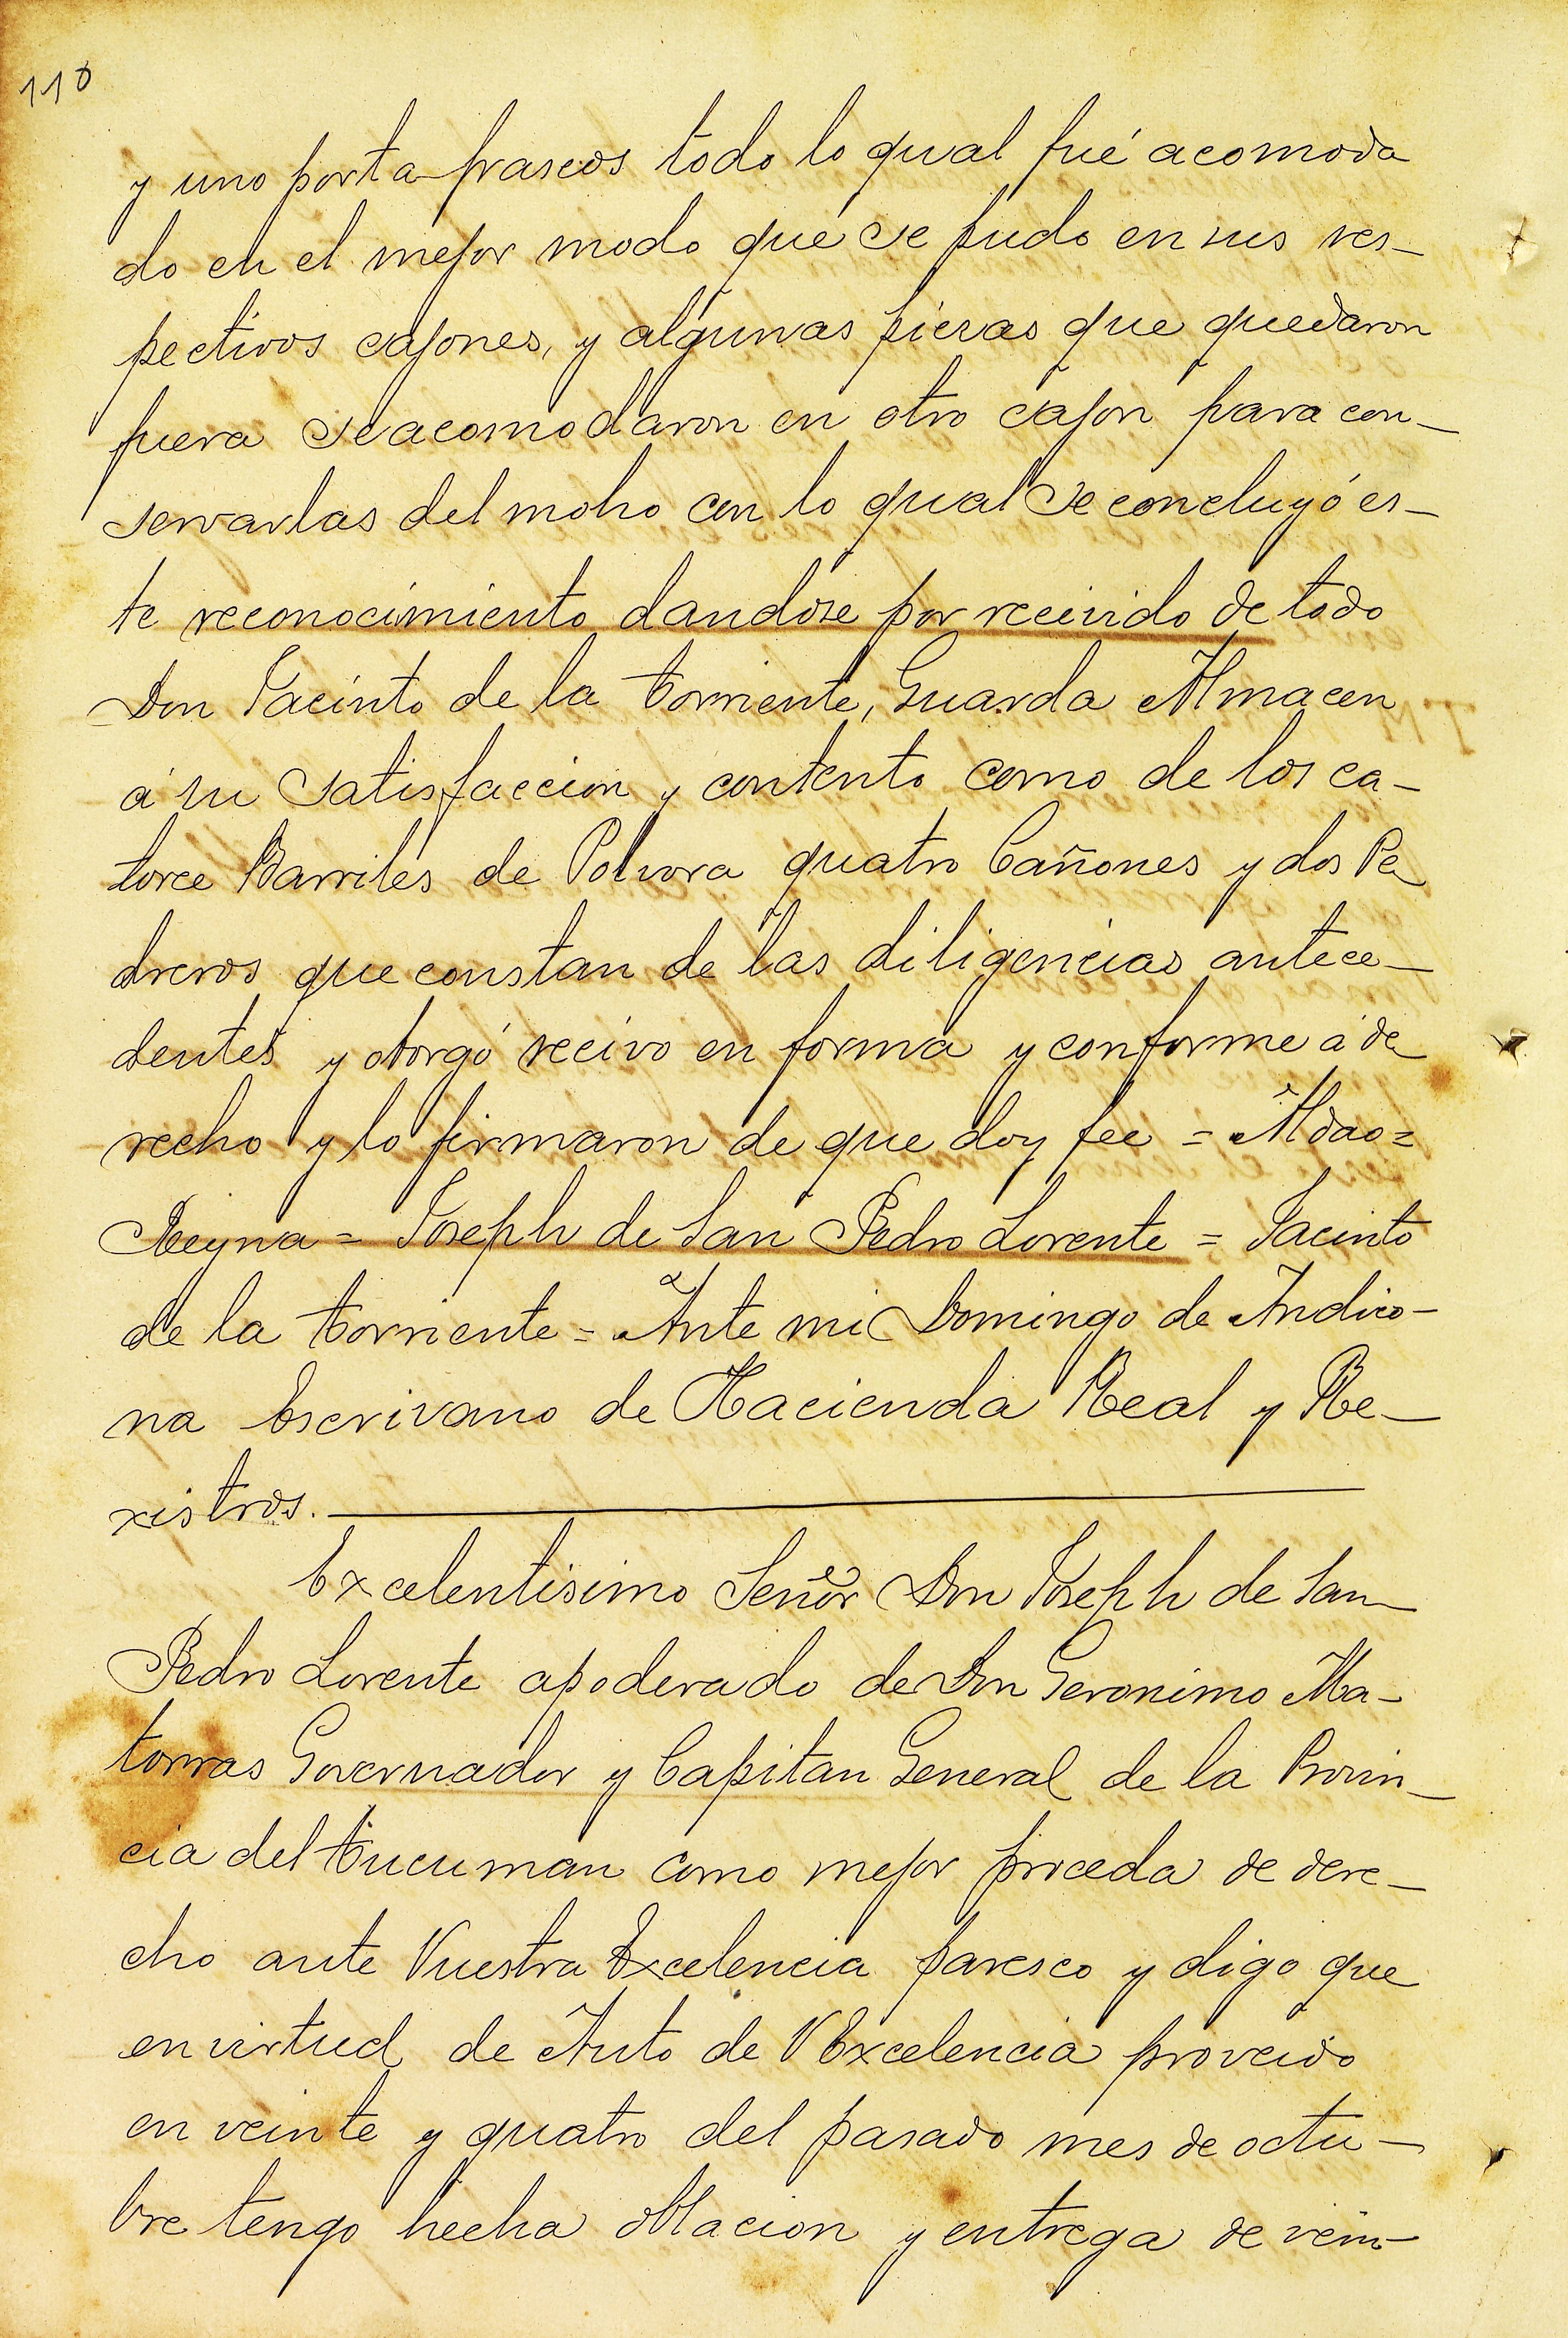 110
y uno porta-frascos todo lo qual fué acomoda
do en el mejor modo que se pudo en sus res-
pectivos cajones, y algunas piezas que quedaron
fuera se acomodaron en otro cajon para con-
servarlas del moho con lo qual se concluyó es-
te reconocimiento dandose por recivido de todo
Don Jacinto de la Torriente, Guarda Almacen
á su satisfaccion y contento como de los ca-
torce Barriles de Polvora quatro Cañones y dos Pe
dreros que constan de las diligencias antece-
dentes y otorgó recivo en forma y conforme á de
recho y lo firmaron de que doy fee = Aldao =
Reyna = Joseph de San Pedro Lorente = Jacinto
de la Torriente = Ante mi Domingo de Andico-
na Escrivano de Hacienda Real y Re-
xistros.
Excelentisimo Señor Don Joseph de San
Pedro Lorente apoderado de Don Geronimo Ma-
torras Governador y Capitan General de la Provin-
cia del Tucuman como mejor proceda de dere-
cho ante Vuestra Excelencia paresco y digo que
en virtud de Auto de VExcelencia proveido
en veinte y quatro del pasado mes de octu-
bre tengo hecha oblacion y entrega de vein-